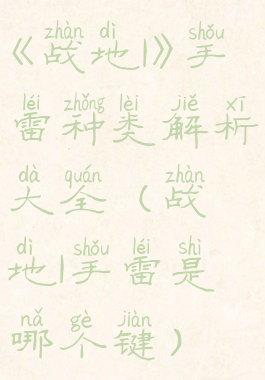 zhàn dì shǒu
《战地1》手
léi zhǒng lèi jiě xī
雷种类解析
dà quán zhàn
大全（战
dì shǒu léi shì
地1手雷是
nǎ gè jiàn
哪个键）